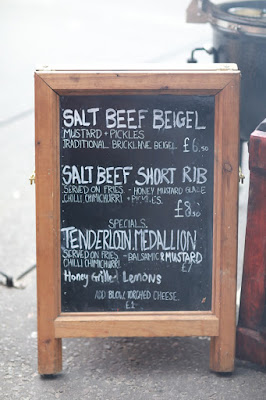 SALT BEEF BEIGEL
MUSTARD + PICKLES
TRADITIONAL BRICKLANE BEIGEL £6.50
SALT BEEF SHORT RIB
SERVED ON FRIES - HONEY MUSTARD GLAZE
CHILLI CHIMICHURRI + PICKLES
£8.50
SPECIALS
TENDERLOIN MEDALLION
SERVED ON FRIES - BALSAMIC & MUSTARD
CHILLI CHIMICHURRI £7
Honey Grilled Lemons
ADD BLOW TORCHED CHEESE
£1